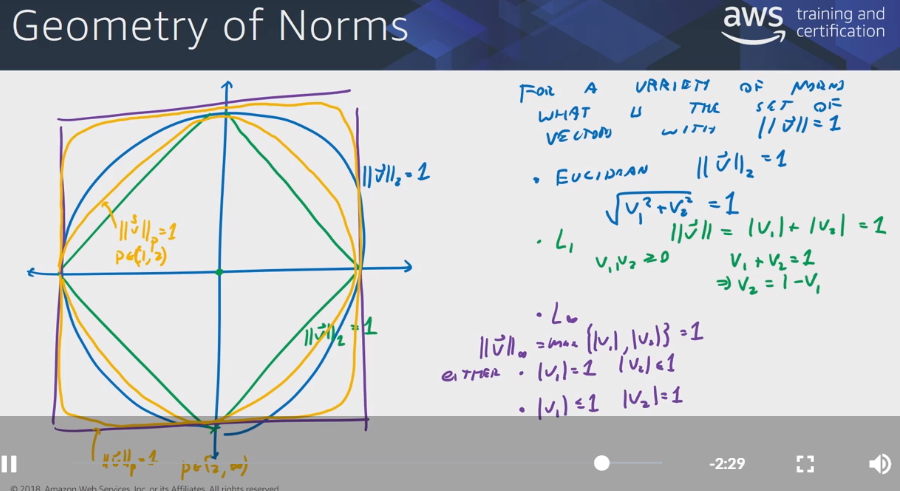 Geometry of Norms
aws training and
certification
FOR A VARIETY OF NORMS
WHAT IS THE SET OF
VECTORS WITH ||v⃗||=1
• EUCLIDEAN ||v⃗||₂ = 1
√(v₁²+v₂²) = 1
• L₁ ||v⃗|| = |v₁| + |v₂| = 1
v₁,v₂ ≥0 v₁ + v₂ = 1
⇒ v₂ = 1 - v₁
• L∞
||v⃗||∞ = max {|v₁|, |v₂|} = 1
EITHER • |v₁| = 1 |v₂| ≤ 1
• |v₁| ≤ 1 |v₂| = 1
||v⃗||₂ = 1
||v⃗||ₚ = 1
p∈(1,2)
||v⃗||₂ = 1
||v⃗||ₚ = 1 p∈(2,∞)
-2:29
© 2018, Amazon Web Services, Inc. or its Affiliates. All rights reserved.